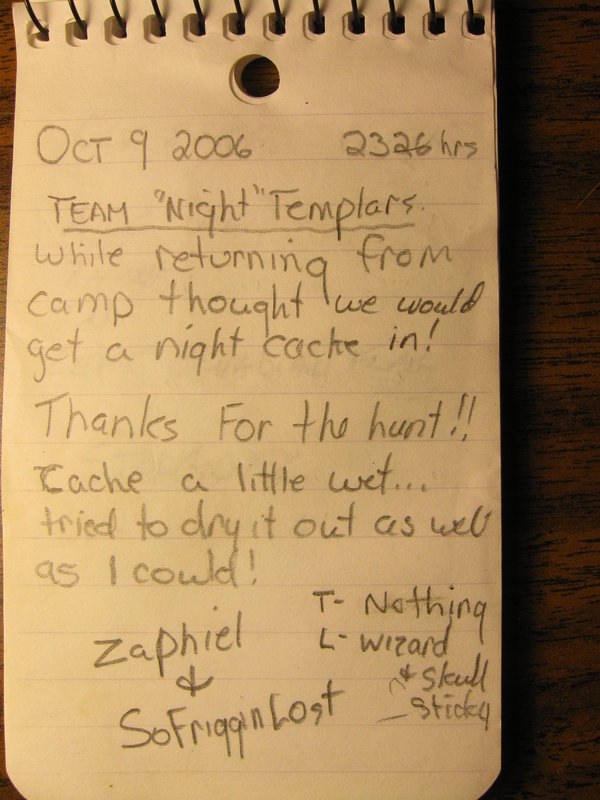 OCT 9 2006 2326 hrs
TEAM "Night" Templars.
while returning from
camp thought we would
get a night cache in!
Thanks For the hunt!!
Cache a little wet...
tried to dry it out as well
as I could!
T- Nothing
L- Wizard
& Skull
Sticky
Zaphiel
&
SoFrigginLost